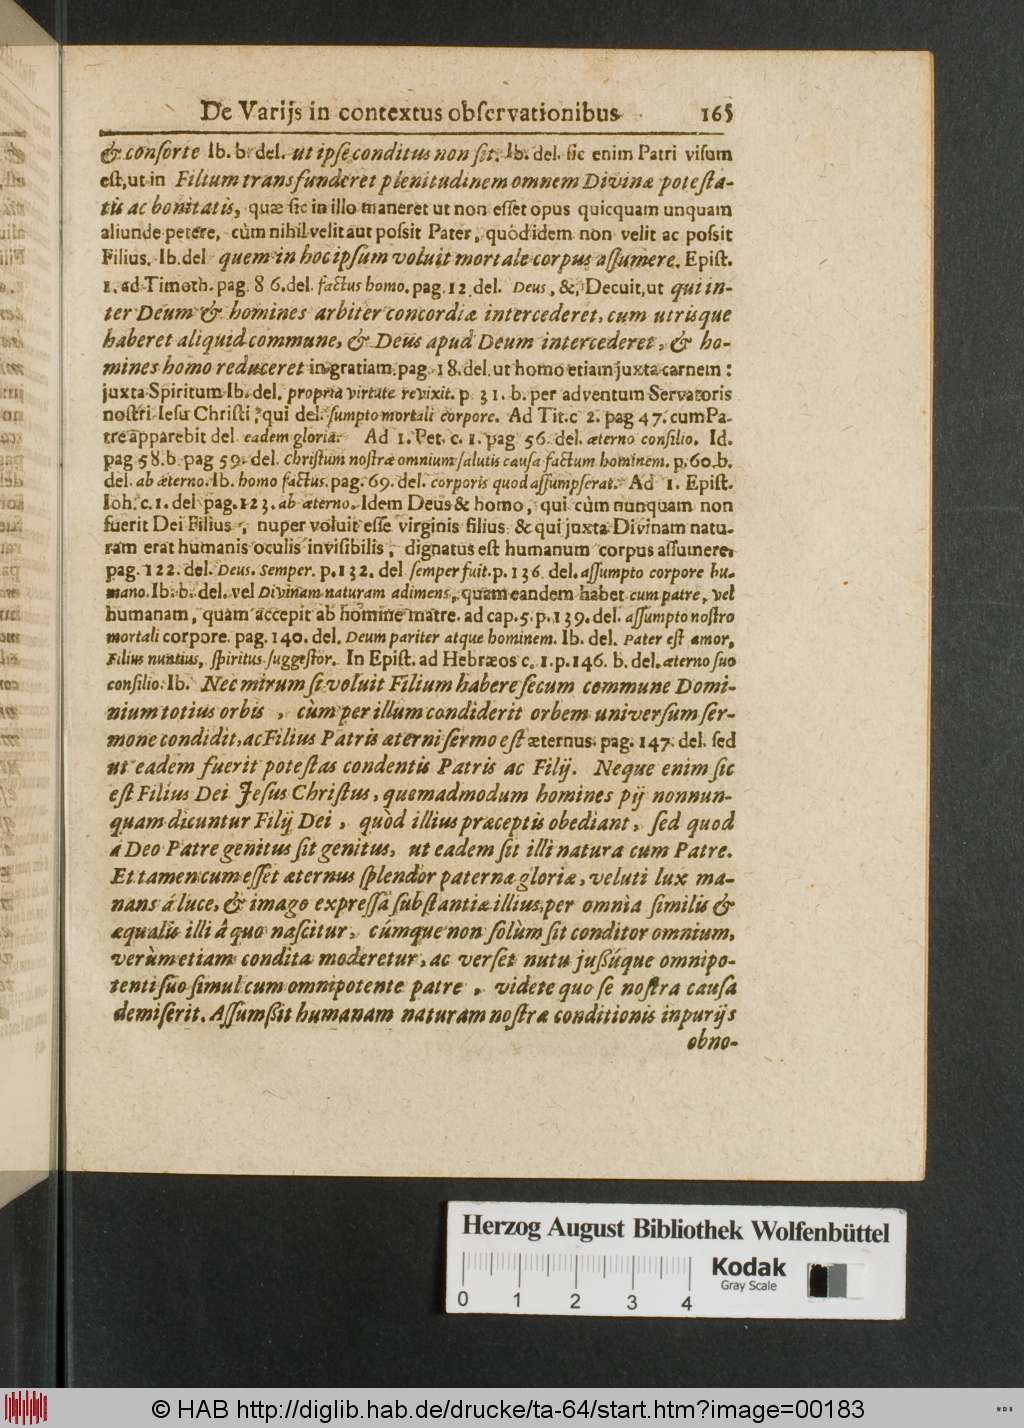 De Varijs in contextus observationibus 165
& consorte Ib. b. del. ut ipse conditus non sit. Ib. del. sic enim Patri visum
est, ut in Filium transfunderet plenitudinem omnem Divinæ potesta-
tis ac bonitatis, quæ sic in illo maneret ut non esset opus quicquam unquam
aliunde petere, cùm nihil velit aut possit Pater, quòd idem non velit ac possit
Filius. Ib. del quem in hoc ipsum voluit mortale corpus assumere. Epist.
1. ad Timoth. pag. 86. del. factus homo. pag. 12. del. Deus, &, Decuit, ut qui in-
ter Deum & homines arbiter concordiæ intercederet, cum utrisque
haberet aliquid commune, & Deus apud Deum intercederet, & ho-
mines homo reduceret in gratiam. pag. 18. del. ut homo etiam juxta carnem:
juxta Spiritum Ib. del. propria virtute revixit. p. 31. b. per adventum Servatoris
nostri Iesu Christi, qui del. sumpto mortali corpore. Ad Tit. c 2. pag 47. cum Pa-
tre apparebit del eadem gloria. Ad 1. Pet. c. 1. pag 56. del. æterno consilio. Id.
pag 58. b. pag 59. del. Christum nostræ omnium salutis causa factum hominem. p. 60. b.
del. ab æterno. Ib. homo factus. pag. 69. del. corporis quod assumpserat. Ad 1. Epist.
Ioh. c. 1. del pag. 123. ab æterno. Idem Deus & homo, qui cùm nunquam non
fuerit Dei Filius, nuper voluit esse virginis filius & qui juxta Divinam natu-
ram erat humanis oculis invisibilis, dignatus est humanum corpus assumere.
pag. 122. del. Deus. Semper. p. 132. del semper fuit. p. 136 del. assumpto corpore hu-
mano. Ib. b. del. vel Divinam naturam adimens, quam eandem habet cum patre, vel
humanam, quam accepit ab homine matre. ad cap. 5. p. 139. del. assumpto nostro
mortali corpore. pag. 140. del. Deum pariter atque hominem. Ib. del. Pater est amor,
Filius nuntius, spiritus suggestor. In Epist. ad Hebræos c. 1. p. 146. b. del. æterno suo
consilio. Ib. Nec mirum si voluit Filium habere secum commune Domi-
nium totius orbis, cùm per illum condiderit orbem universum ser-
mone condidit, ac Filius Patris æterni sermo est æternus. pag. 147. del. sed
ut eadem fuerit potestas condentis Patris ac Filij. Neque enim sic
est Filius Dei Jesus Christus, quemadmodum homines pij nonnun-
quam dicuntur Filij Dei, quòd illius præceptis obediant, sed quod
á Deo Patre genitus sit genitus, ut eadem sit illi natura cum Patre.
Et tamen cum esset æternus splendor paternæ gloriæ, veluti lux ma-
nans á luce, & imago expressa substantiæ illius, per omnia similis &
æqualis illi â quo nascitur, cúmque non solùm sit conditor omnium,
verùm etiam condita moderetur, ac verset nutu jussúque omnipo-
tenti suo simul cum omnipotente patre, videte quo se nostra causa
demiserit. Assumsit humanam naturam nostræ conditionis inpurijs
obno-
Herzog August Bibliothek Wolfenbüttel
Kodak
Gray Scale
0 1 2 3 4
© HAB http://diglib.hab.de/drucke/ta-64/start.htm?image=00183